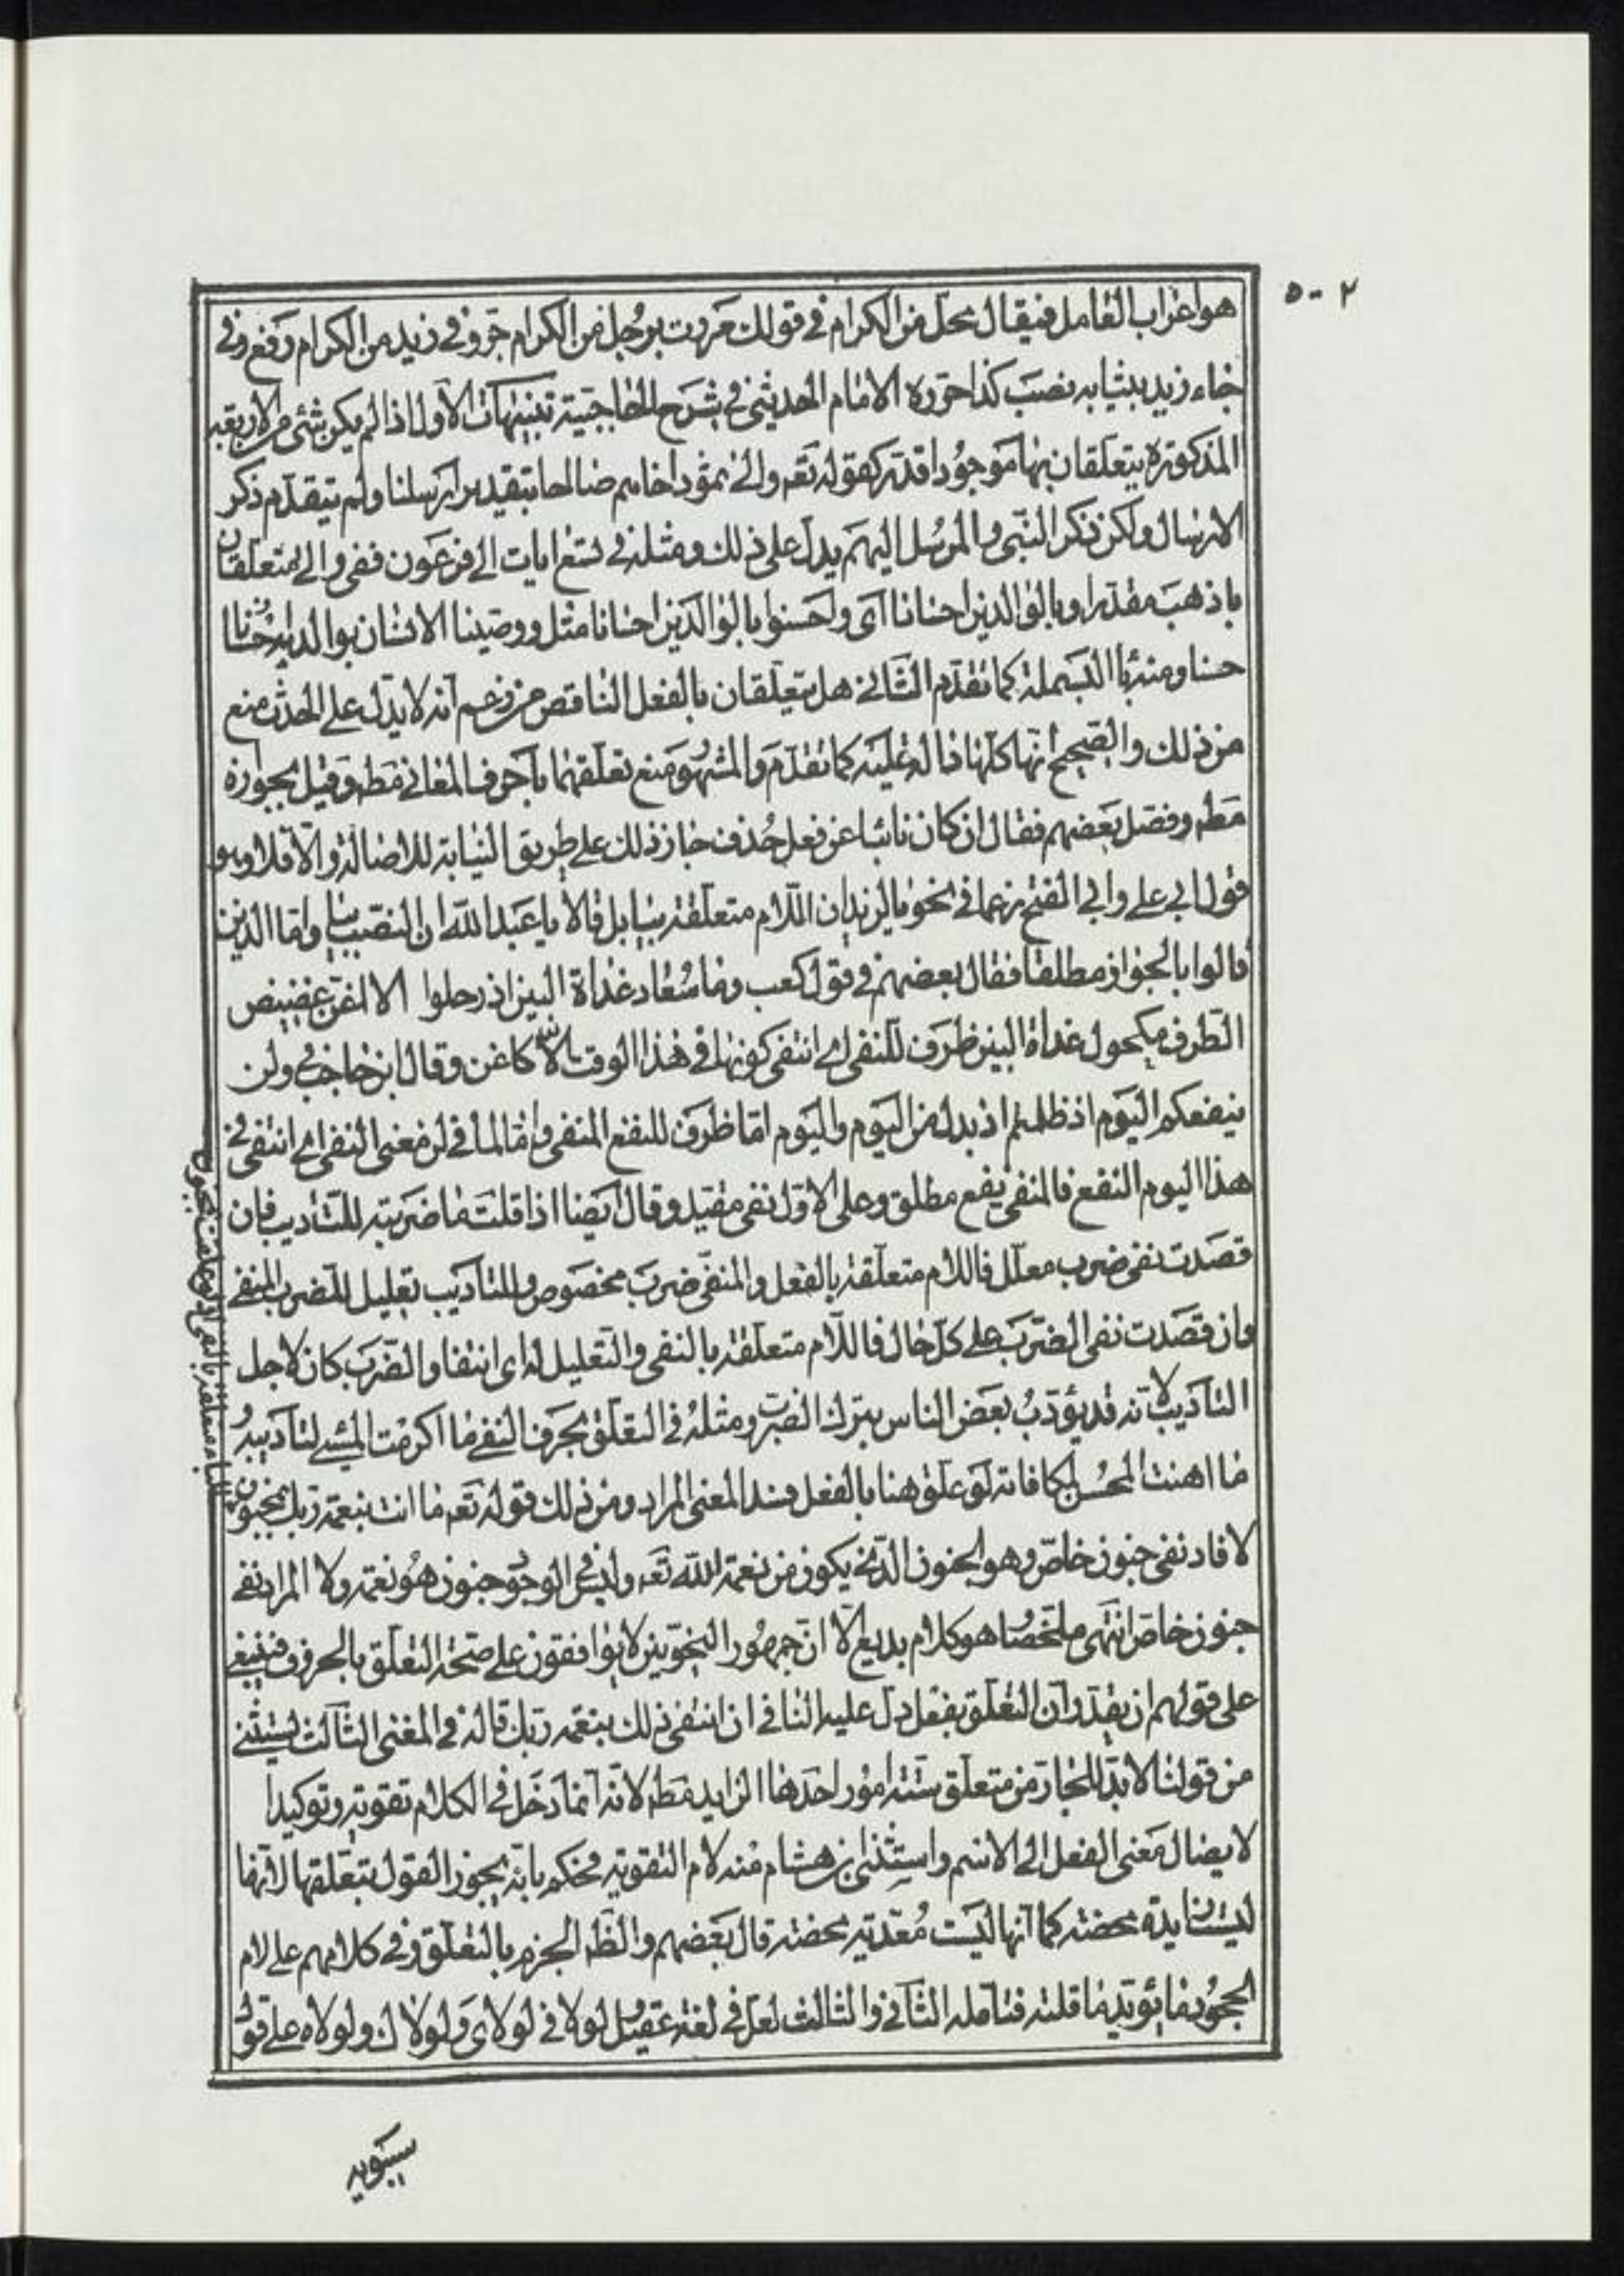 ٥٠٢
هو اعراب العامل فيقال محل من الكرام في قولك مررت برجل من الكرام جر وفي زيد من الكرام رفع وفي
جاء زيد بثيابه نصب كذا حرره الامام الحديثي في شرح الحاجبية تنبيهات الأول اذا لم يكن شئ من الاربعة
المذكورة يتعلقان بها موجودا قدر كقوله تعه والى ثمود اخاهم صالحا بتقدير ارسلنا ولم يتقدم ذكر
الارسال ولكن ذكر النبي والمرسل اليهم يدل على ذلك ومثله في تسع ايات الى فرعون ففي والى متعلقان
باذهب مقدرا وبالوالدين احسانا اى واحسنوا بالوالدين احسانا مثل ووصينا الانسان بوالديه احسانا
حسنا ومنه با البسملة كما تقدم الثاني هل يتعلقان بالفعل الناقص من زعم انه لا يدل على الحدث منع
من ذلك والصحيح انها كلها دالة عليه كما تقدم والمشهور منع تعلقهما باحرف المعاني مطه وقيل بجوازه
مطه وفصل بعضهم فقال ان كان نائبا عن فعل حذف جاز ذلك على طريق النيابة للاصالة والا فلا وهو
قول ابي علي وابي الفتح زعما في نحو يا لزيد ان اللام متعلقة بيا بل قالا يا عبد الله ان النصب بيا واما الذين
قالوا بالجواز مطلقا فقال بعضهم في قول كعب وما سعاد غداة البين اذ رحلوا الا اغن غضيض
الطرف مكحول غداة البين ظرف للنفي اي انتفى كونها في هذا الوقت الا كاغن وقال ابن حاجب في ولن
ينفعكم اليوم اذ ظلمتم اذ بدل من اليوم واليوم اما ظرف للنفع المنفي واما لما في لن معنى النفي اي انتفى في
هذا اليوم النفع فالمنفي نفع مطلق وعلى الاول نفي مقيد وقال ايضا اذا قلت ما ضربته للتاديب فان
قصدت نفي ضرب معلل فاللام متعلقة بالفعل والمنفي ضرب مخصوص وللتاديب تعليل للضرب المنفي
وان قصدت نفي الضرب على كل حال فاللام متعلقة بالنفي والتعليل له اى انتفاء الضرب كان لاجل
التاديب لانه قد يؤدب بعض الناس بترك الضرب ومثله في التعلق بحرف النفي ما اكرمت المسئ لتاديبه و
ما اهنت المحسن لمكافاته لو علق هنا بالفعل فسد المعنى المراد ومن ذلك قوله تعه ما انت بنعمة ربك بمجنون
لافاد نفي جنون خاص وهو الجنون الذي يكون من نعمة الله تعه وليس في الوجود جنون هو نعمة ولا المراد نفي
جنون خاص انتهى ملخصا وهو كلام بديع الا ان جمهور النحويين لا يوافقون على صحة التعلق بالحرف فينبغي
على قولهم ان يقدر ان التعلق بفعل دل عليه النافي ان انتفى ذلك بنعمة ربك قاله في المغني الثالث يستثنى
من قولنا لا بد للجار من متعلق ستة امور احدها الزايد مطه لانه انما دخل في الكلام تقوية وتوكيدا
لايصال معنى الفعل الى الاسم واستثنى ابن هشام منه لام التقوية فحكم بانه يجوز القول بتعلقها لانها
ليست زايدة محضة كما انها ليست معدية محضة قال بعضهم والظه الجزم بالتعلق وفي كلامهم على لام
الجحود ما يؤيد ما قلته فتامله الثاني والثالث لعل في لغة عقيل لولا في لولاى ولولاك ولولاه على قول
سيبويه